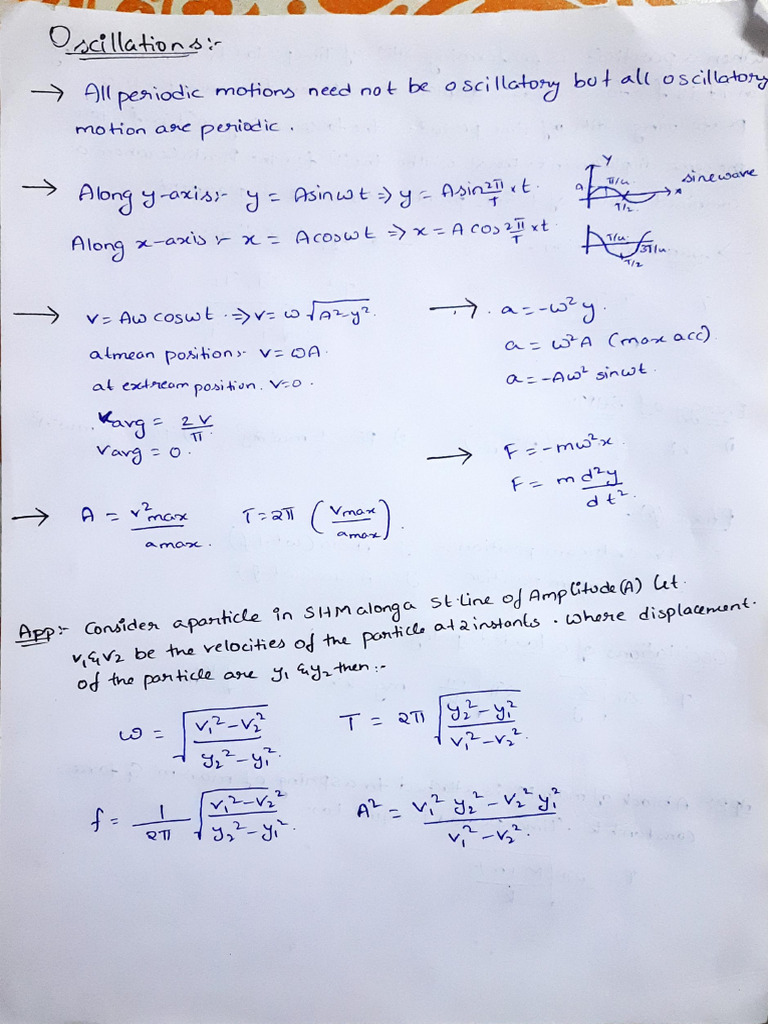 Oscillations:-
→ All periodic motions need not be oscillatory but all oscillatory
motion are periodic.
→ Along y-axis:- y = Asinωt ⇒ y = Asin 2π/T × t.
Along x-axis:- x = Acosωt ⇒ x = A cos 2π/T × t
Y
a
T/4
T/2
x
sinewave
T/4
T/2
3T/4
→ v = Aω cosωt. ⇒ v = ω √(A²-y²).
at mean position:- v = ωA
at extream position. v=0.
Varg = 2V/π.
Varg = 0.
→ a = -ω²y.
a = ω²A (max acc).
a = -Aω² sinωt.
→ F = -mω²x.
F = m d²y/dt².
→ A = v²max/amax. T = 2π (Vmax/amax).
App:- Consider a particle in SHM along a St.Line of Amplitude(A) let.
v₁ & v₂ be the velocities of the particle at 2 instants. where displacement.
of the particle are y₁ & y₂ then:-
ω = √((v₁²-v₂²)/(y₂²-y₁²)). T = 2π √((y₂²-y₁²)/(v₁²-v₂²)).
f = 1/2π √((v₁²-v₂²)/(y₂²-y₁²)). A² = (v₁² y₂² - v₂² y₁²)/(v₁²-v₂²).